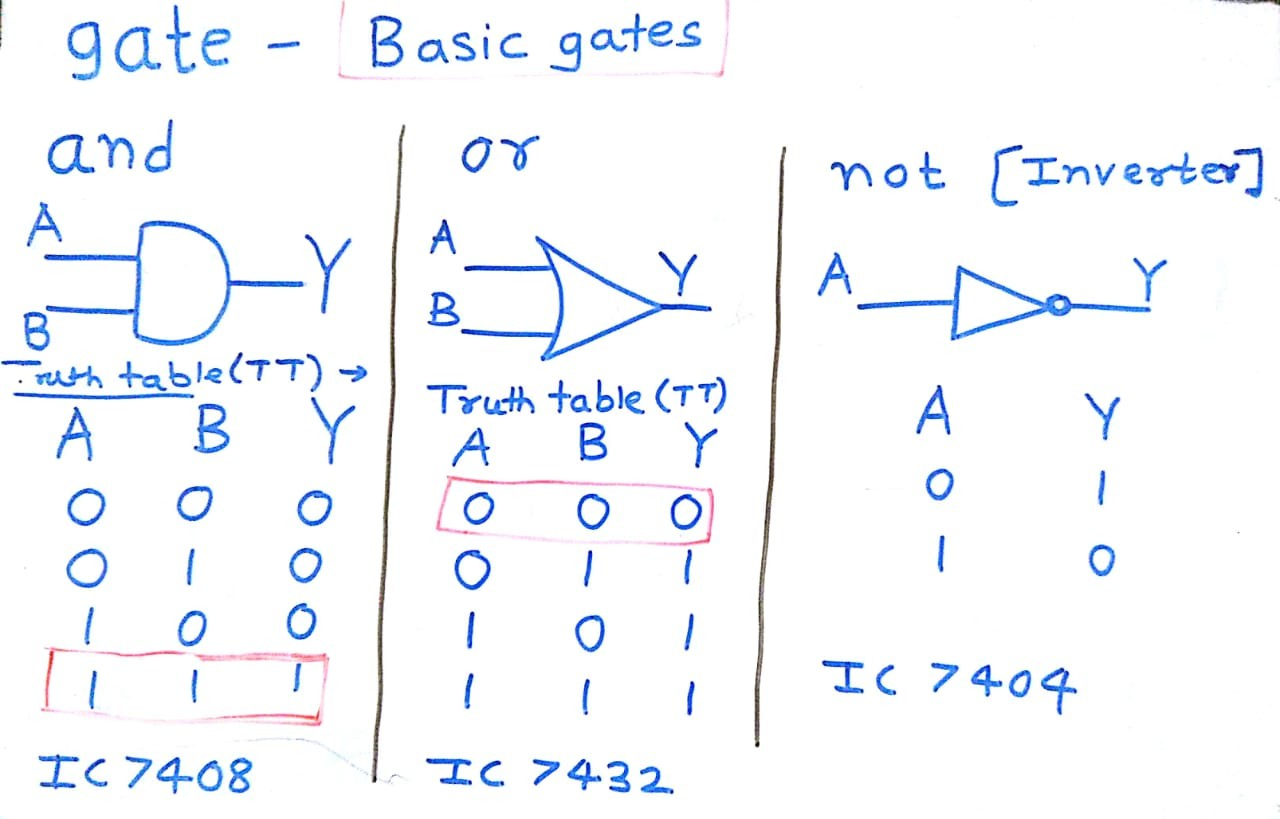 gate - Basic gates
and
A
B
Y
Truth table (TT) →
A B Y
0 0 0
0 1 0
1 0 0
1 1 1
IC 7408
or
A
B
Y
Truth table (TT)
A B Y
0 0 0
0 1 1
1 0 1
1 1 1
IC 7432
not [Inverter]
A
Y
A Y
0 1
1 0
IC 7404